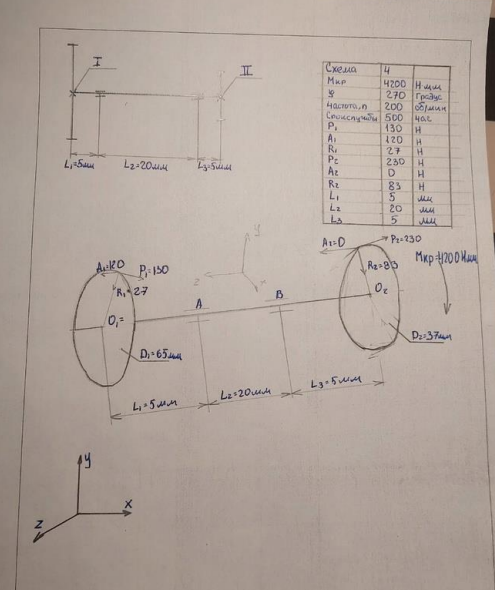 I
II
L₁=5мм
L₂=20мм
L₃=5мм
Схема 4
Мкр 4200 Н мм
φ 270 градус
Частота, n 200 об/мин
Срок службы 500 час
P₁ 130 Н
A₁ 120 Н
R₁ 27 Н
P₂ 230 Н
A₂ 0 Н
R₂ 83 Н
L₁ 5 мм
L₂ 20 мм
L₃ 5 мм
y
z
A₁=120
P₁=130
R₁=27
O₁=
D₁=65мм
A
B
A₂=0
P₂=230
R₂=83
Мкр=4200 Нмм
O₂
D₂=37мм
L₁=5мм
L₂=20мм
L₃=5мм
y
x
z